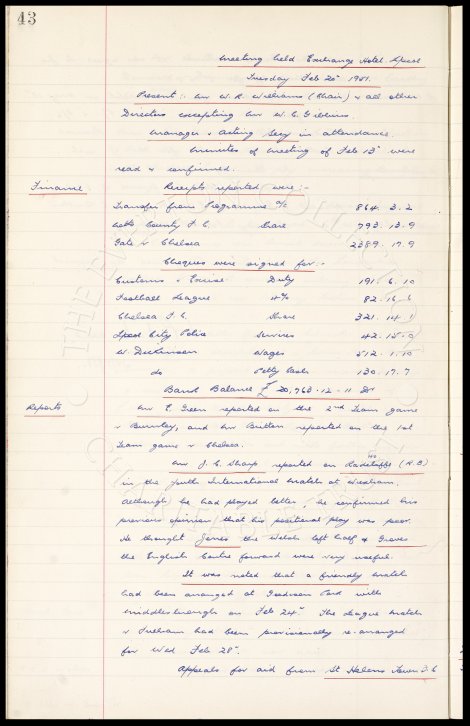 43
Meeting held Exchange Hotel L'pool
Tuesday Feb 20th 1951.
Present:- Mr W. R. Williams (Chair) & all other
Directors excepting Mr W. C. Gibbins.
Manager & Acting Secy in attendance.
Minutes of meeting of Feb 13th were
read & confirmed.
Finance. Receipts reported were:-
Transfer from Programme a/c 864. 3. 2
Notts County F.C. Share 793. 13. 9
Gate v Chelsea 2389. 17. 9
Cheques were signed for:-
Customs & Excise Duty 191. 6. 10
Football League 4% 82. 16.
Chelsea F.C. Share 321. 14. 1
L'pool City Police Services 42. 15. 0
W. Dickinson Wages 512. 1. 10
do Petty Cash 130. 17. 7
Bank Balance £ 20,763. 12. 11 Dr
Reports Mr E. Green reported on the 2nd Team game
v Burnley, and Mr Britton reported on the 1st
Team game v Chelsea.
Mr J. C. Sharp reported on Radcliffe (R.B)
in the Youth International match at Wrexham.
Although he had played better, he confirmed his
previous opinion that his positional play was poor.
He thought Jones the Welsh left half & Graves
the English Centre forward were very useful.
It was noted that a friendly match
had been arranged at Goodison Park with
Middlesbrough on Feb 24th. The League match
v Fulham had been provisionally re-arranged
for Wed Feb 28th.
Appeals for aid from St Helens Town F.C
THE EV
COLLECT